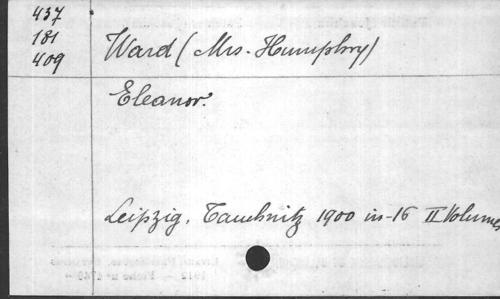 437
181
409
Ward (Mrs. Humphry)
Eleanor.
Leipzig, Tauchnitz 1900 in-16 II Volumes